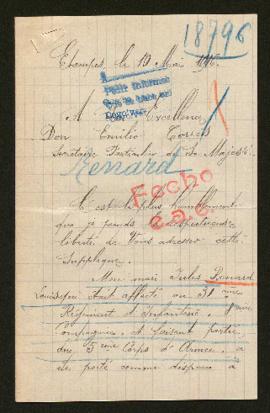 18796
Etampes, le 19 Mai 1916.
A Son Excellence
Don Emilio Torres
Secrétaire Particulier de Sa Majesté.
Renard
Fecho
C'est le plus humblement
que je prends la respectueuse
liberté de Vous adresser cette
Supplique.
Mon mari Jules Renard
était affecté au 31 ème
Régiment d'Infanterie.
Compagnie. faisant partie
du 5 ème Corps d'Armée. a
été porté comme disparu à